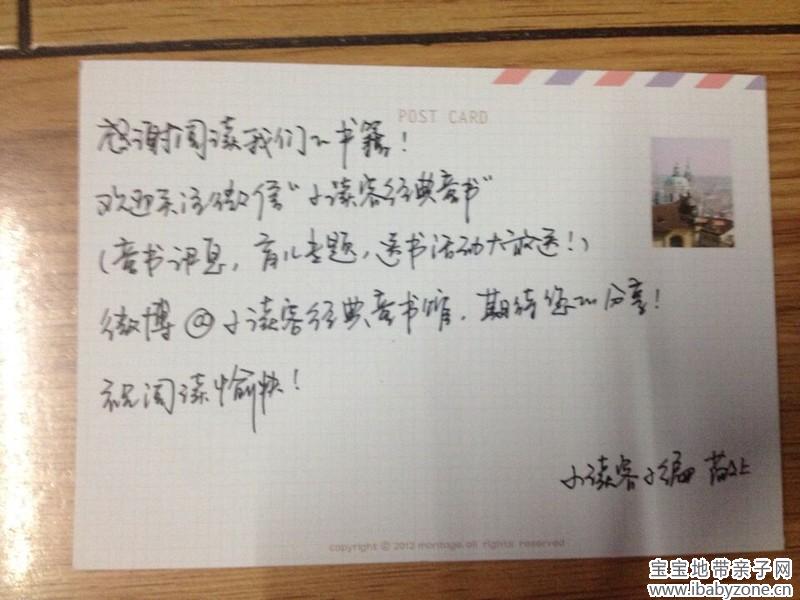 POST CARD
感谢阅读我们的书籍!
欢迎关注微信“小读客经典童书”
(童书讯息,育儿专题,送书活动大放送!)
微博@小读客经典童书馆,期待您的分享!
祝阅读愉快!
小读客小编 敬上
copyright © 2012 montage.all rights reserved
宝宝地带亲子网
www.ibabyzone.cn